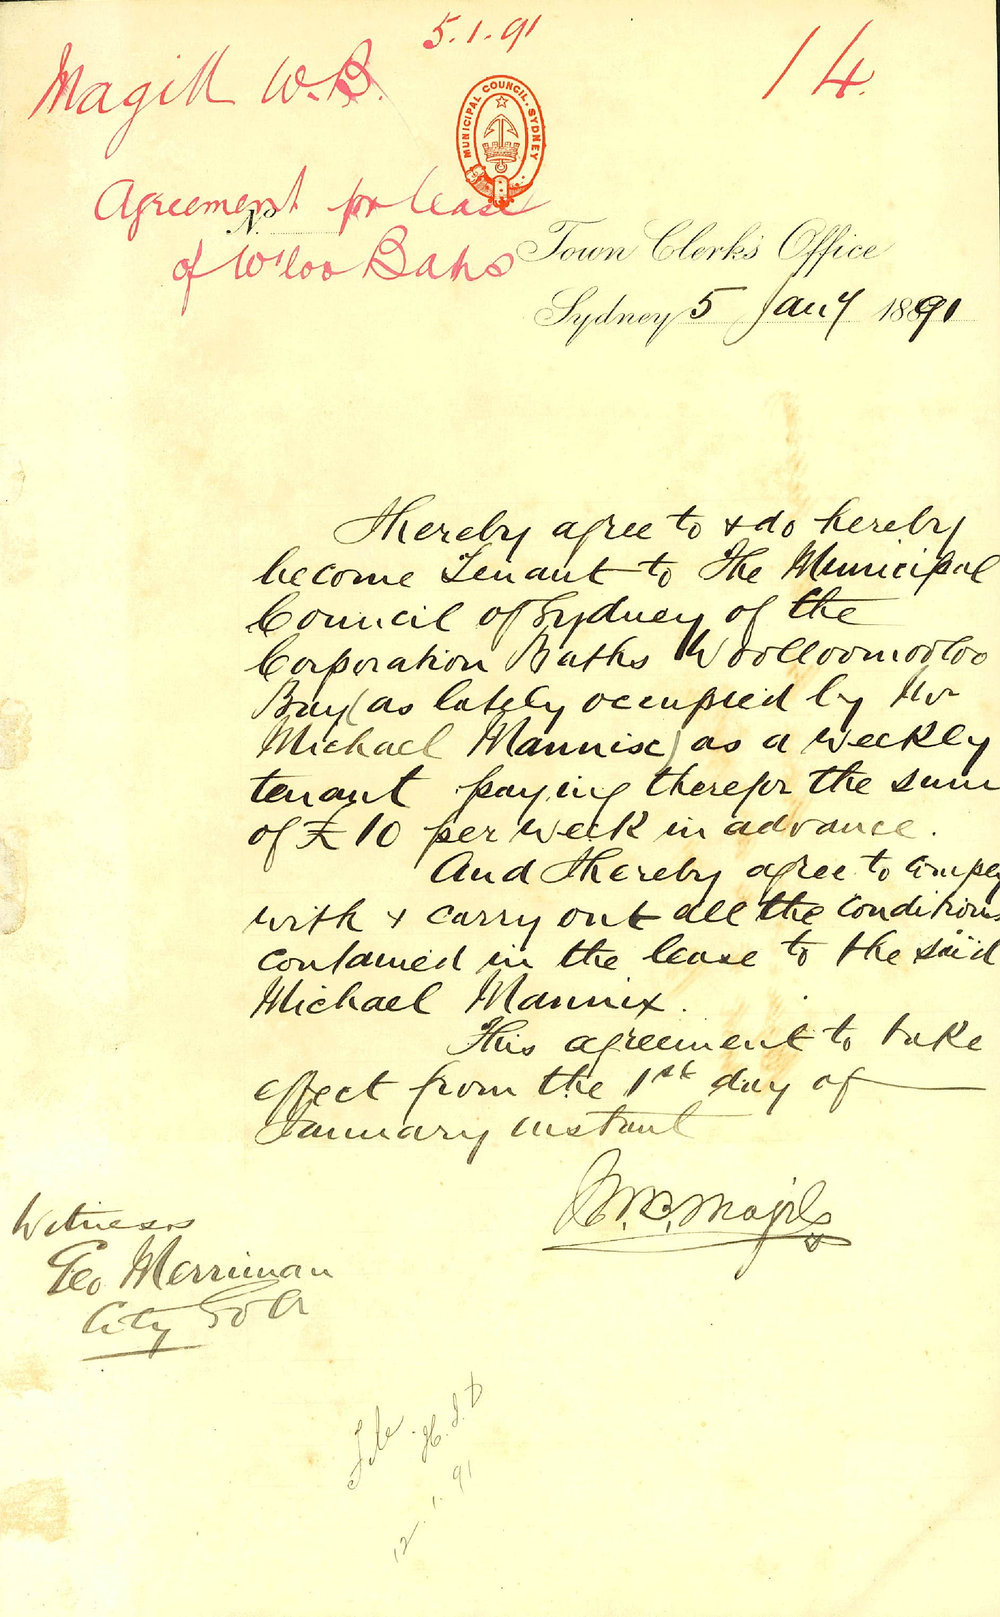 5.1.91
14.
Magill W.B.
MUNICIPAL COUNCIL. SYDNEY
Agreement for lease
of W'loo Baths
No
Town Clerk's Office
Sydney 5 Jany 1891
I hereby agree to & do hereby
become Tenant to The Municipal
Council of Sydney of the
Corporation Baths Woolloomooloo
Bay (as lately occupied by Mr
Michael Mannix) as a weekly
tenant paying therefor the sum
of £10 per week in advance.
And I hereby agree to comply
with & carry out all the conditions
contained in the lease to the said
Michael Mannix.
This agreement to take
effect from the 1st day of
January instant
W.B. Magill
Witness
Geo Merriman
City
File. H.S.D
12.1.91